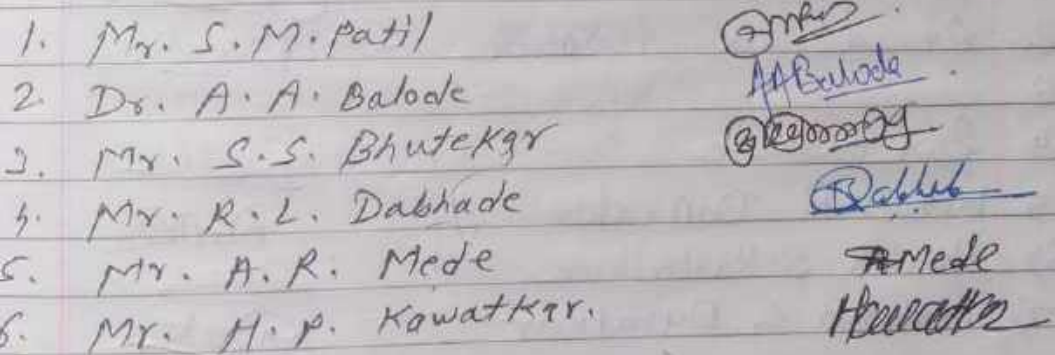 1. Mr. S.M. Patil
2. Dr. A.A. Balode AABalode
3. Mr. S.S. Bhutekar
4. Mr. R.L. Dabhade
5. Mr. A.R. Mede AMede
6. Mr. H.P. Kawatkar.